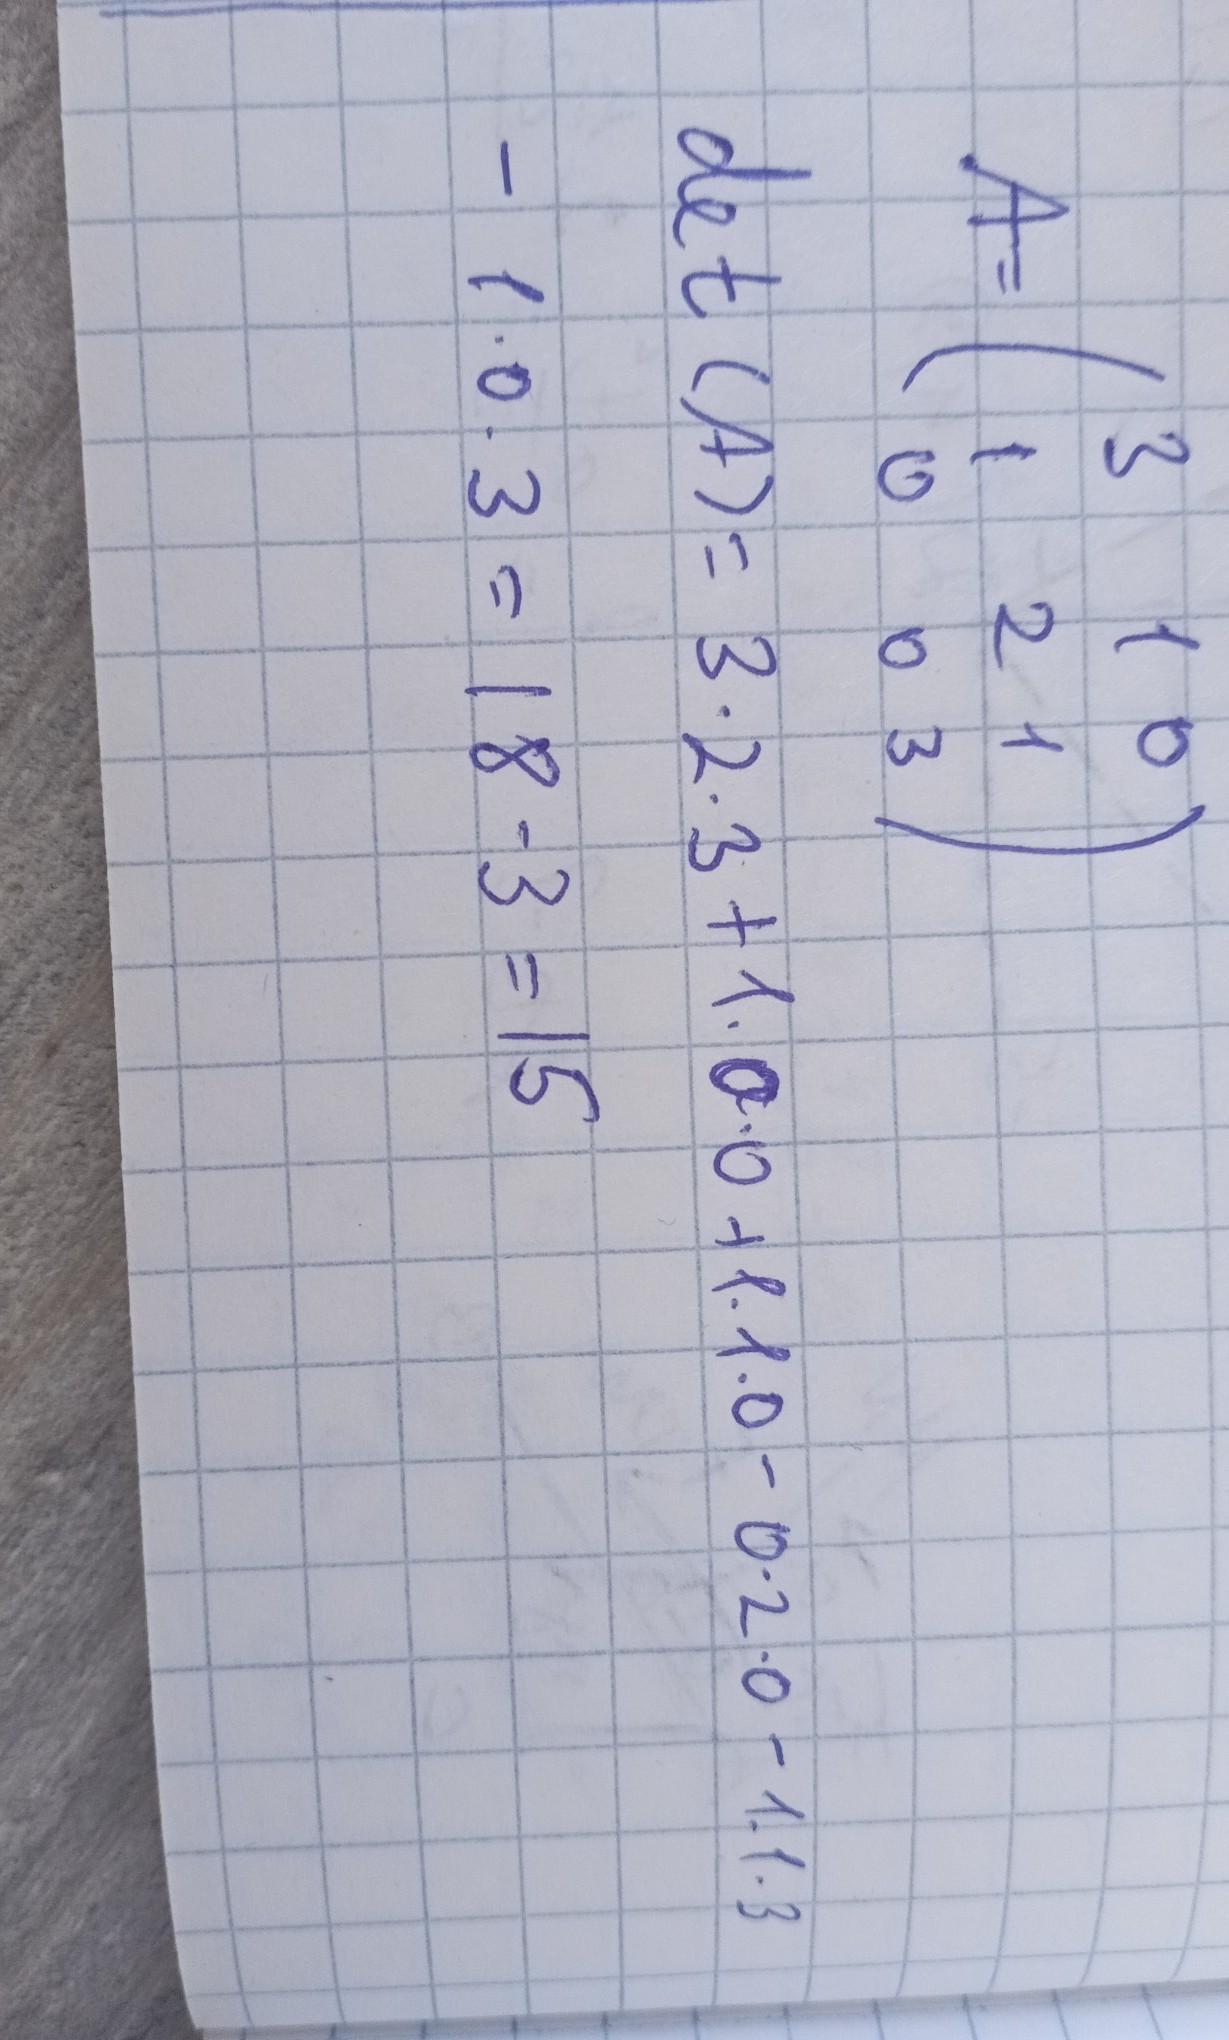 3 1 0
A= ( 1 2 1 )
0 0 3
det (A) = 3·2·3 + 1·0·0 + 1·1·0 - 0·2·0 - 1·1·3
- 1·0·3 = 18 - 3 = 15